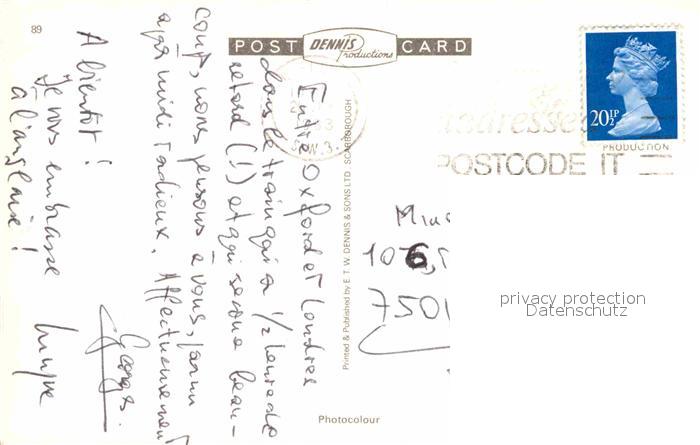 89
POST Dennis Productions CARD
Entre Oxford et Londres
dans le train qui a 1/2 heure de
retard (!) et qui secoue beau-
coup, nous pensons à vous, par un
après midi radieux. Affectueusement
Georges.
A bientôt !
Je vous embrasse
à l'anglaise !
Printed & Published by E. T. W. DENNIS & SONS LTD. SCARBOROUGH
Photocolour
S.W.3.
addressed
POSTCODE IT
20½P
PRODUCTION
106,
7501
privacy protection
Datenschutz